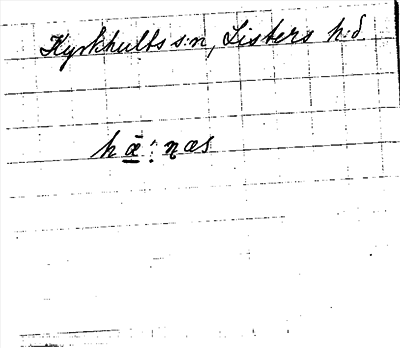 Kyrkhults s:n, Listers h:d.
hǣ:ŋæs